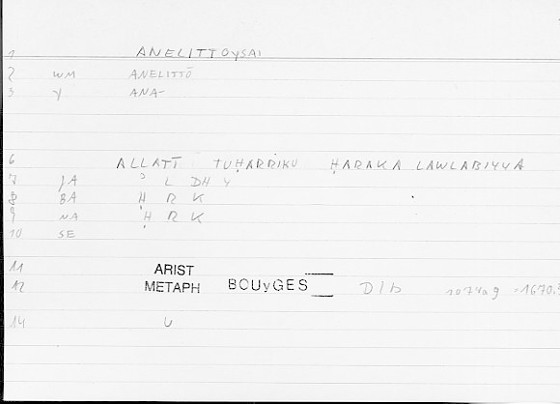 1 ANELITTOYSAI
2 WM ANELITTŌ
3 Y ANA-
6 ALLATĪ TUḤARRIKU ḤARAKA LAWLABIYYA
7 JA ʾ L DH Y
8 BA Ḥ R K
9 NA Ḥ R K
10 SE
11 ARIST
12 METAPH BOUyGES D1b 1074a9 =1670.
14 U